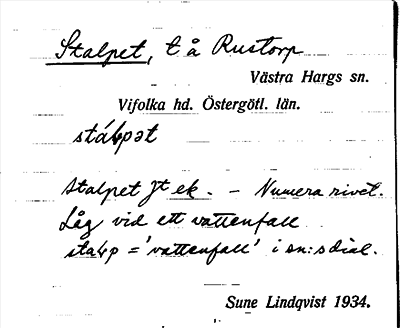 Stalpet, t å Rustorp
Västra Hargs sn.
Vifolka hd. Östergötl. län.
stalpet ek. – Numera rivet.
Låg vid ett vattenfall
= 'vattenfall' i sn:s dial.
Sune Lindqvist 1934.